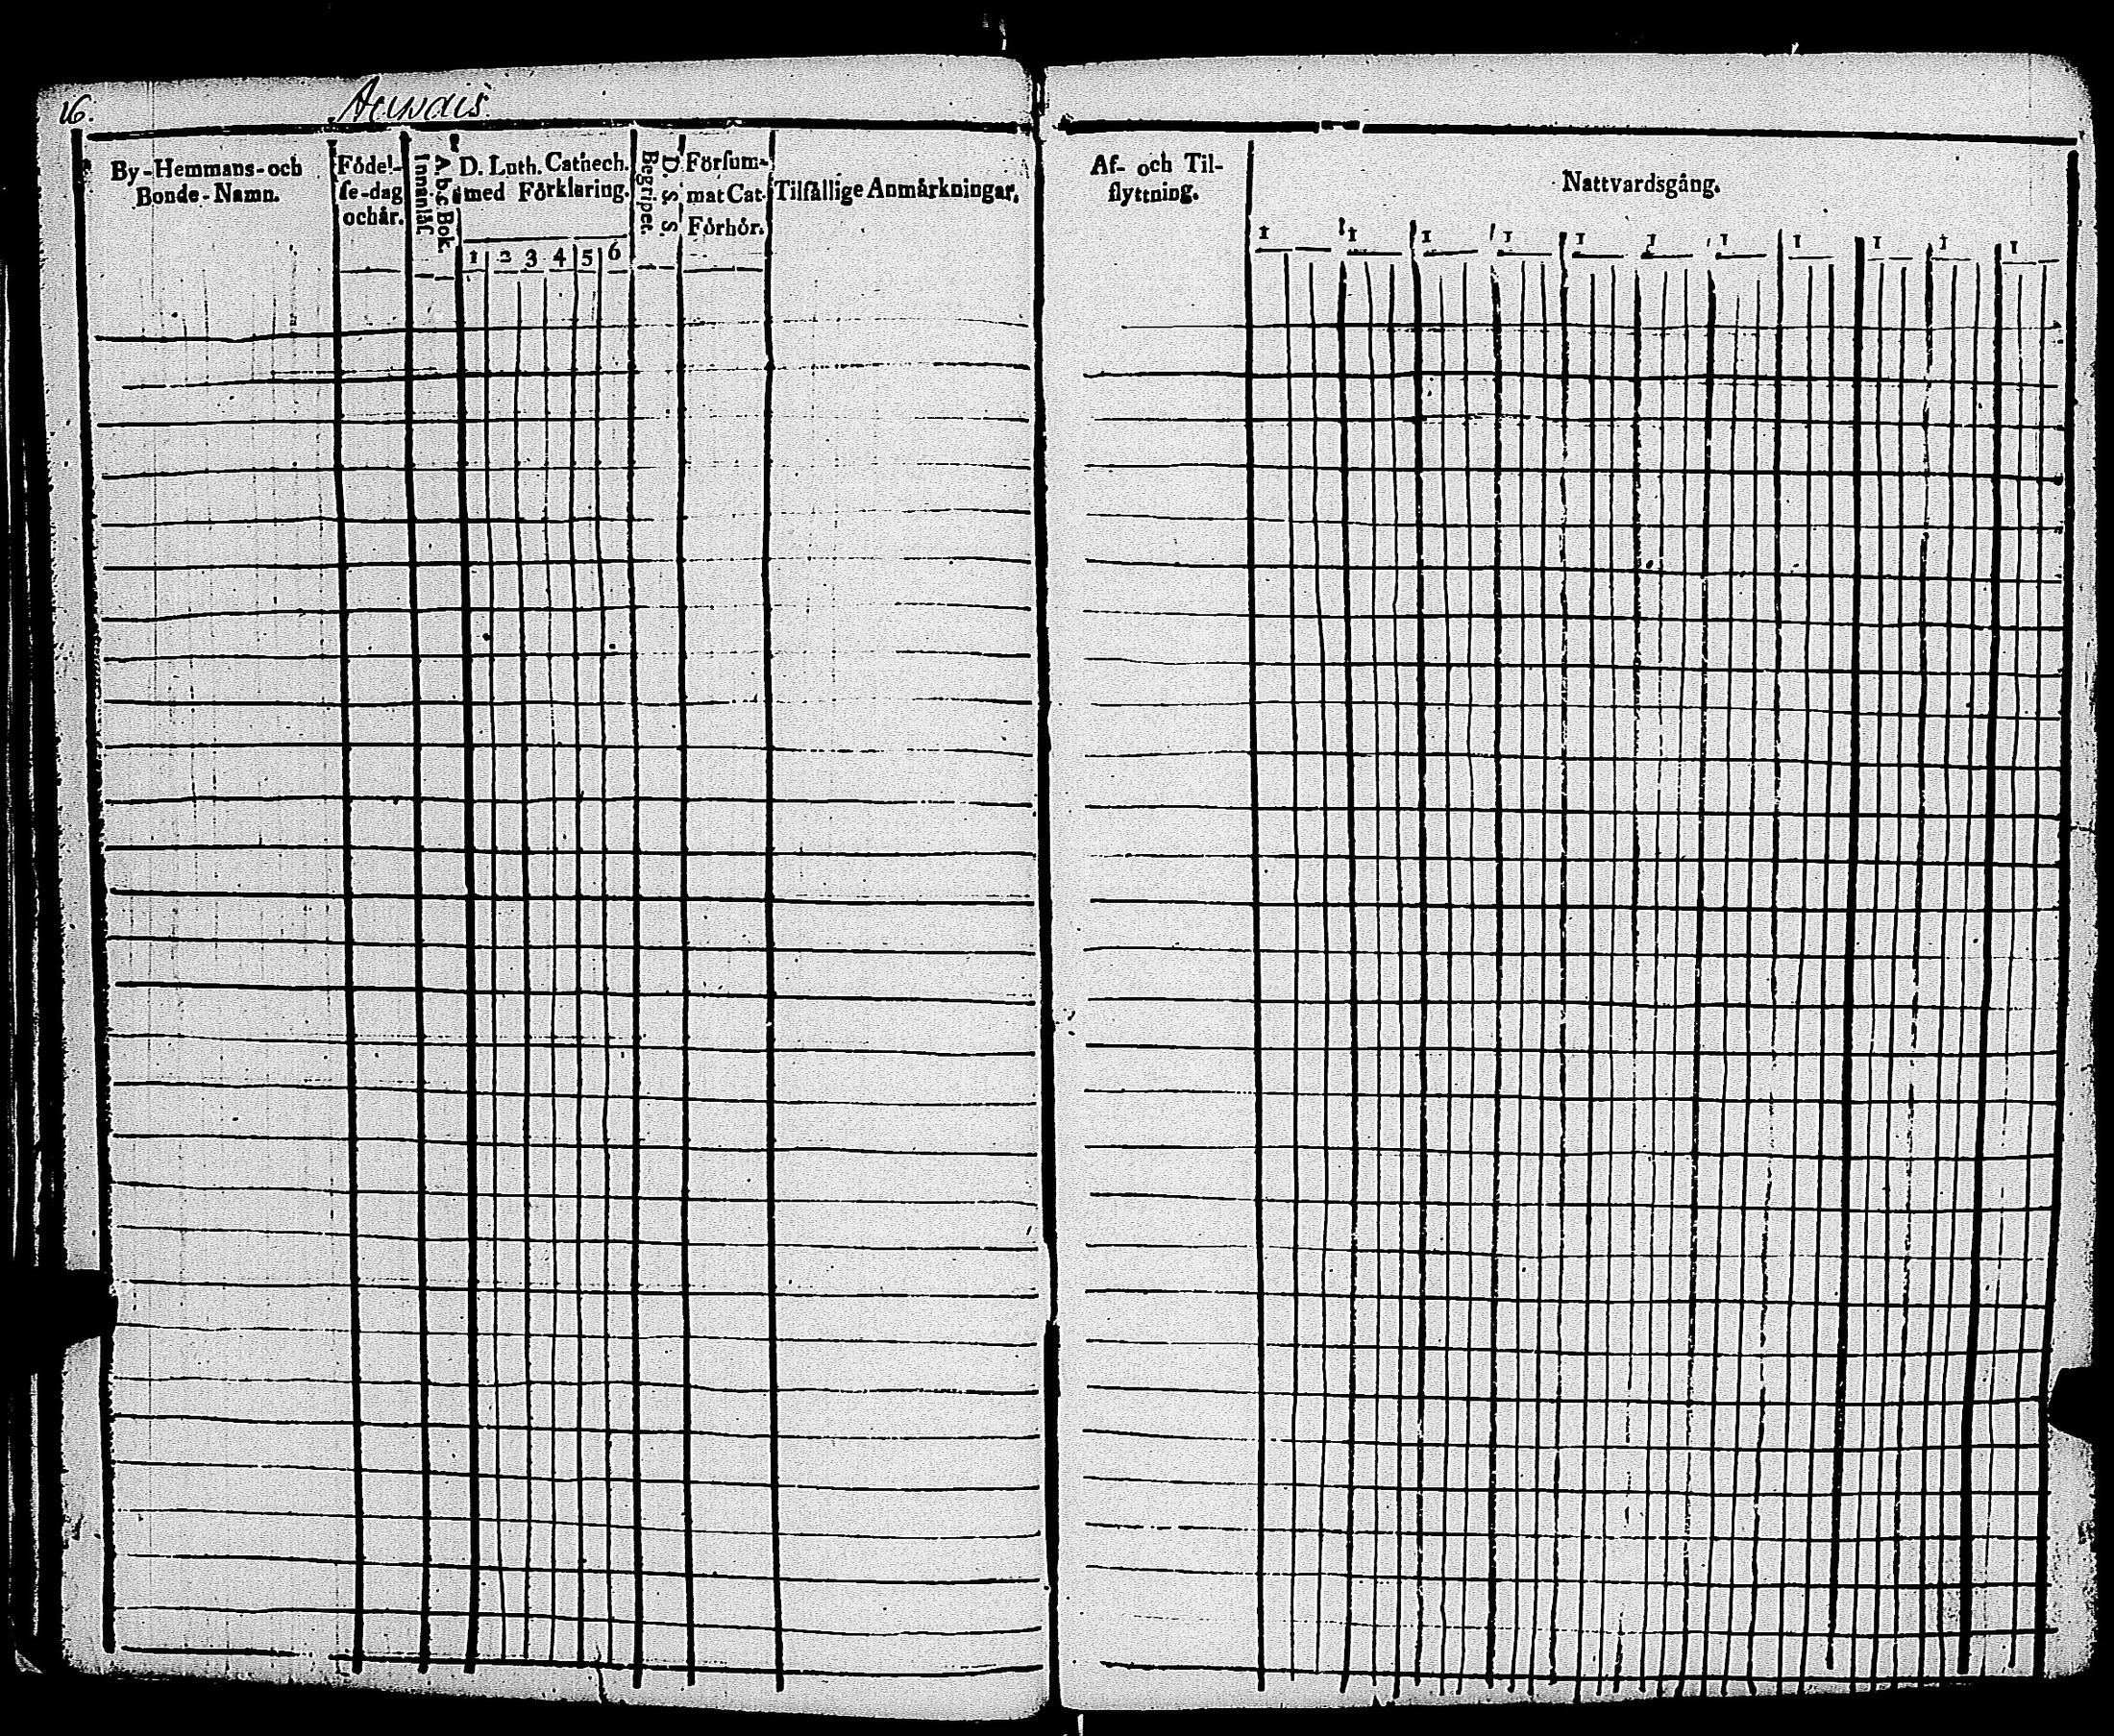 16.
By-Hemmans- och
Bonde-Namn.
Födel-
se-dag
och år.
A.b.c.Bok.
Innanläf.
D. Luth. Cathech.
med Förklaring.
1 2 3 4 5 6
D. S. S.
Begripet.
Förfum-
mat Cat.
Förhör.
Tilfällige Anmärkningar.
Af- och Til-
flyttning.
Nattvardsgång.
1 1 1 1 1 1 1 1 1 1 1